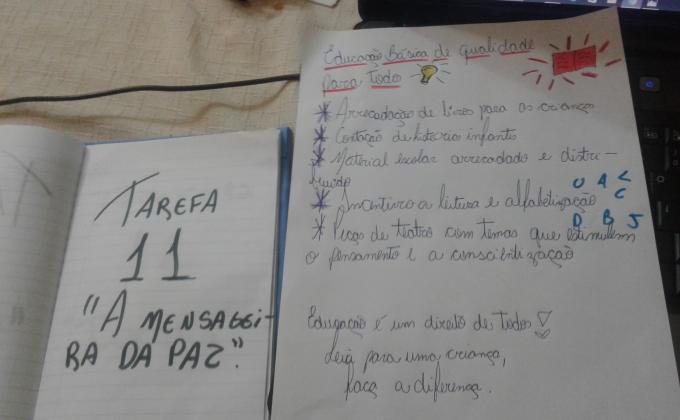 TAREFA
11
"A MENSAGEI-
RA DA PAZ".
Educação Básica de Qualidade
para todos
* Arrecadação de livros para as crianças
* Contação de historia infantis
* Material escolar arrecadado e distri-
buido
* Incentivo a leitura e alfabetização
* Peças de teatros com temas que estimulem
o pensamento e a conscientização
U A L
C
D B J
Educação é um direito de todos!
Leia para uma criança,
faça a diferença.